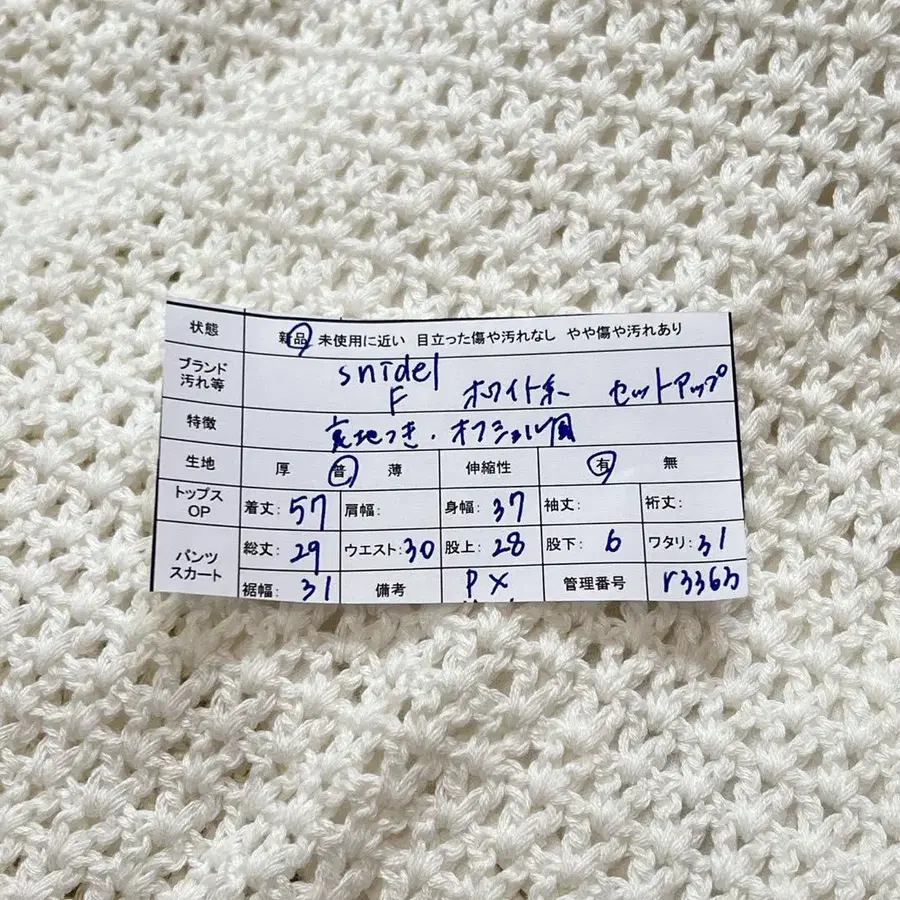 状態 新品 未使用に近い 目立った傷や汚れなし やや傷や汚れあり
ブランド 汚れ等 snidel
F ホワイト系 セットアップ
特徴 裏地つき・オフショル風
生地 厚 普 薄 伸縮性 有 無
トップス OP 着丈: 57 肩幅: 身幅: 37 袖丈: 裄丈:
パンツ スカート 総丈: 29 ウエスト: 30 股上: 28 股下: 6 ワタリ: 31
裾幅: 31 備考 P X 管理番号 r3363